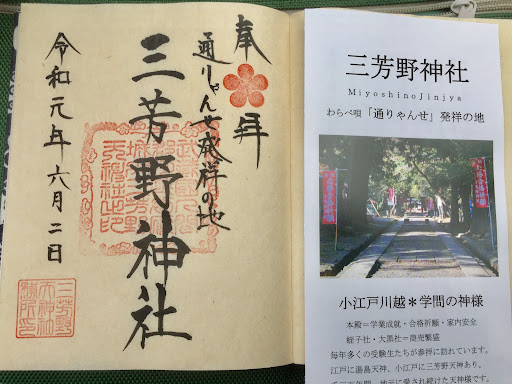 奉拝
通りゃんせ発祥の地
三芳野神社
令和元年六月二日
三芳野神社
MiyoshinoJinjya
わらべ唄「通りゃんせ」発祥の地
小江戸川越＊学問の神様
本殿＝学業成就・合格祈願・家内安全
蛭子社・大黒社＝商売繁盛
毎年多くの受験生たちが参拝に訪れています。
江戸に湯島天神、小江戸に三芳野天神あり。